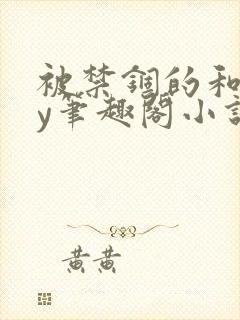 被禁锢的和
y笔趣阁小说
黄黄